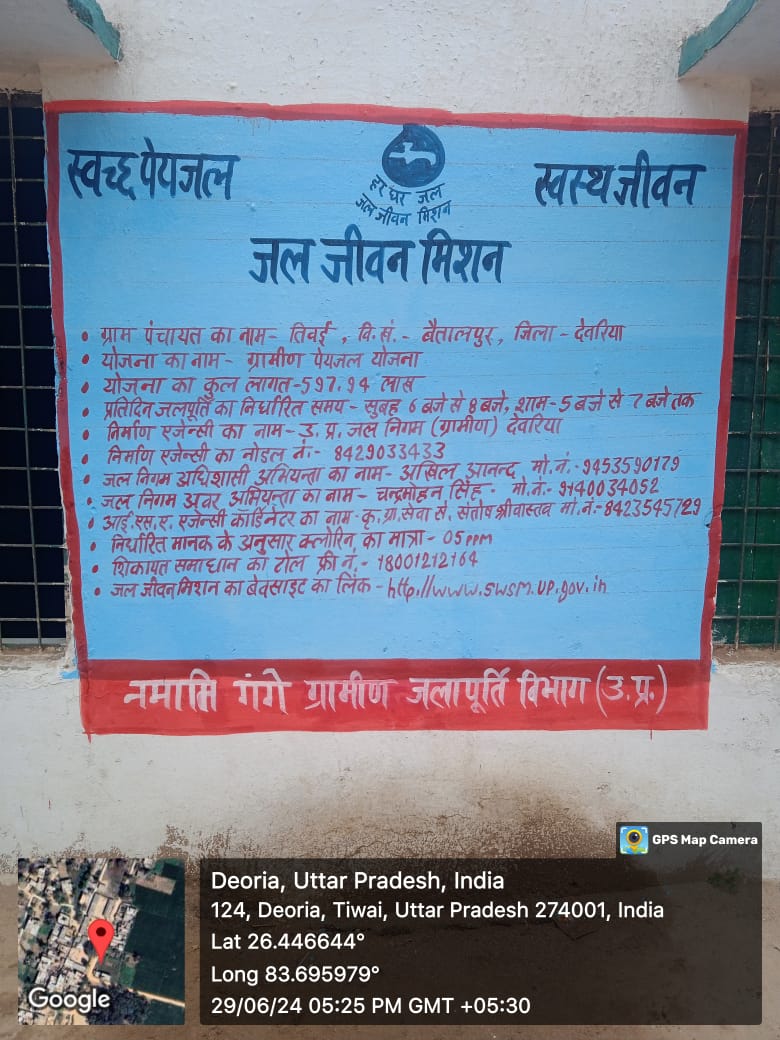 स्वच्छ पेयजल
हर घर जल
जल जीवन मिशन
स्वस्थ जीवन
जल जीवन मिशन
• ग्राम पंचायत का नाम- तिवई , वि.सं.- बैतालपुर, जिला - देवरिया
• योजना का नाम- ग्रामीण पेयजल योजना
• योजना का कुल लागत-597.94 लाख
• प्रतिदिन जलपूर्ति का निर्धारित समय- सुबह 6 बजे से 8 बजे, शाम-5 बजे से 7 बजे तक
• निर्माण एजेन्सी का नाम-उ.प्र. जल निगम (ग्रामीण) देवरिया
• निर्माण एजेन्सी का नोडल नं:- 8429033433
• जल निगम अधिशासी अभियन्ता का नाम- अखिल आनन्द मो.नं.-9453590179
• जल निगम अवर अभियन्ता का नाम- चन्द्रमोहन सिंह- मो.नं:-9140034052
• आई.एस.ए. एजेन्सी कॉर्डिनेटर का नाम-कृ.ग्रा.सेवा सं. संतोष श्रीवास्तव मो.नं:-8423545729
• निर्धारित मानक के अनुसार क्लोरिन का मात्रा- 05 ppm
• शिकायत समाधान का टोल फ्री नं.- 18001212164
• जल जीवन मिशन का बेवसाइट का लिंक- http.//www.swsm.up.gov.in
नमामि गंगे ग्रामीण जलापूर्ति विभाग (उ.प्र.)
GPS Map Camera
Deoria, Uttar Pradesh, India
124, Deoria, Tiwai, Uttar Pradesh 274001, India
Lat 26.446644°
Long 83.695979°
29/06/24 05:25 PM GMT +05:30
Google